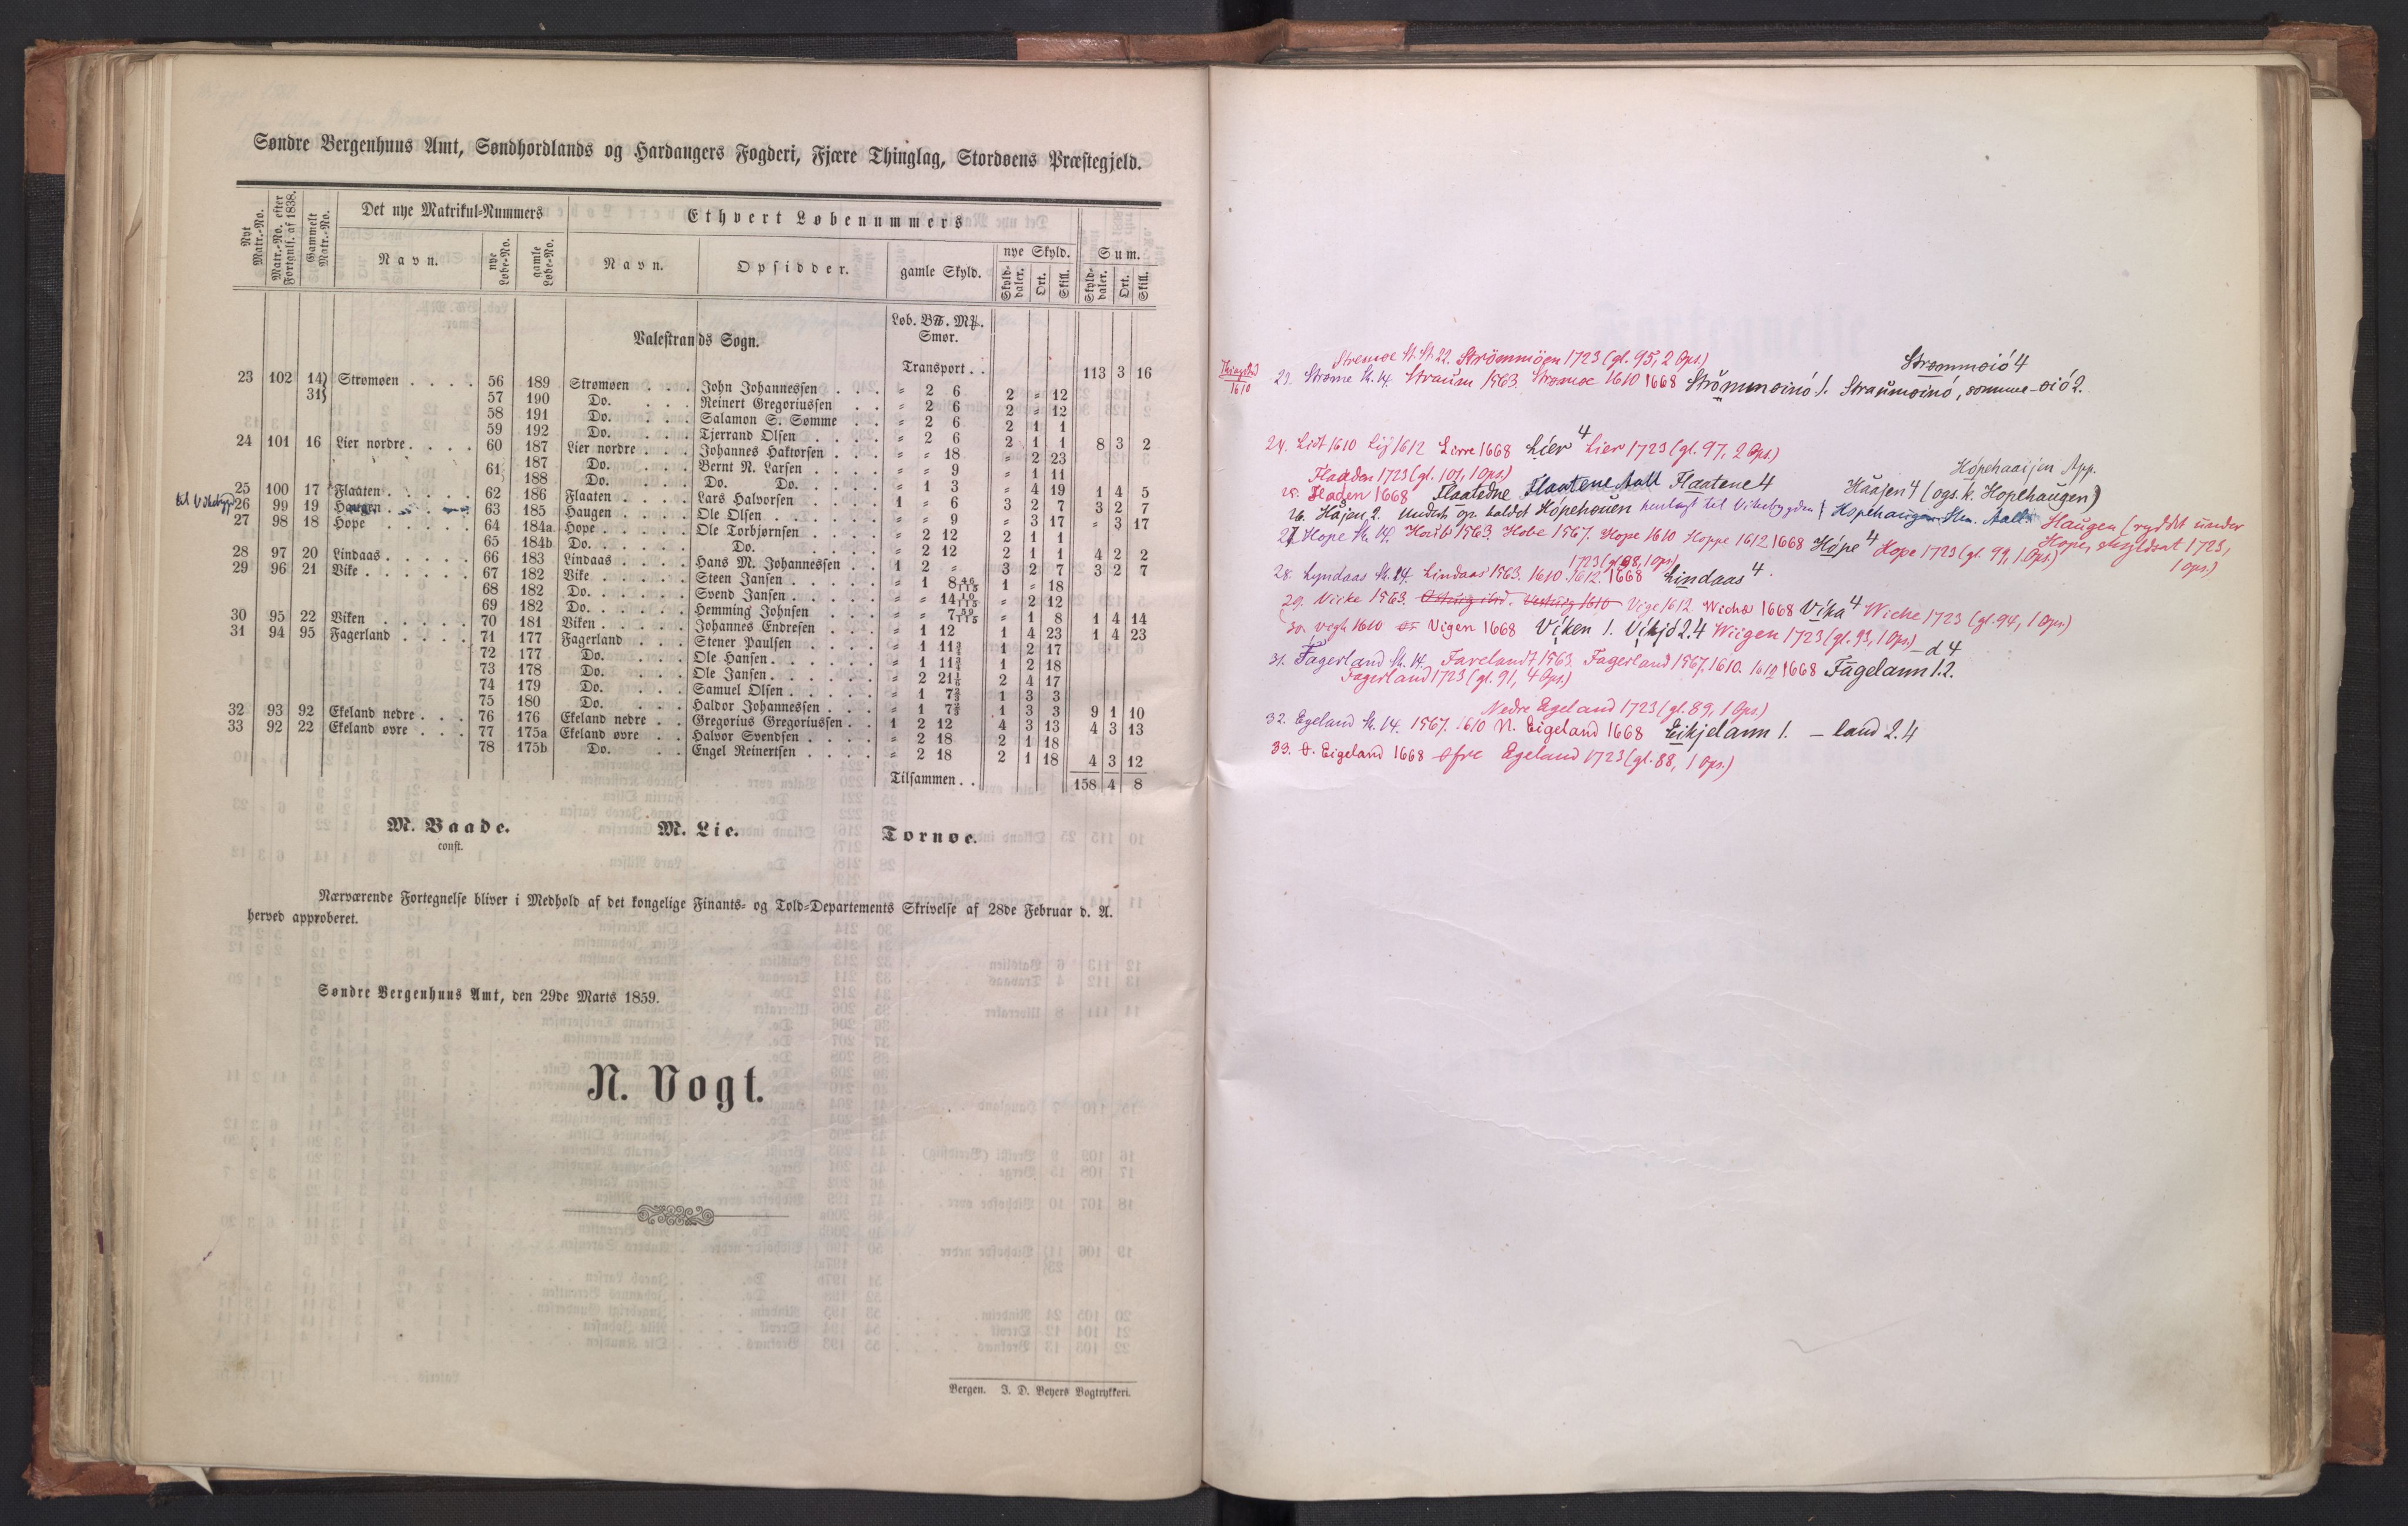 Søndre Bergenhuus Amt, Søndhordlands og Hardangers Fogderi, Fjære Thinglag, Stordøens Præstegjeld.
Nyt Matr.-No. Matr.-No. efter Fortgnls. af 1838. Gammelt Matr.-No. Det nye Matrikul-Nummers Ethvert Løbenummers
Navn. nye Løbe-No. gamle Løbe-No. Navn. Opsidder. gamle Skyld. nye Skyld. Sum.
Skyld-daler. Ort. Skill. Skyld-daler. Ort. Skill.
Løb. B℔. M℔.
Valestrands Sogn. Smør.
Transport . . 113 3 16
23 102 14} Strømøen . . . . 56 189 Strømøen . . . John Johannessen . . . „ 2 6 2 „ 12
31} 57 190 Do. . . . Reinert Gregoriussen . . „ 2 6 2 „ 12
58 191 Do. . . . Salamon S. Somme . . „ 2 6 2 1 1
59 192 Do. . . . Tjerrand Olsen . . . . „ 2 6 2 1 1 8 3 2
24 101 16 Lier nordre . . . . 60 187 Lier nordre . . . Johannes Haktorsen . . . „ „ 18 „ 2 23
187 Do. . . . Bernt N. Larsen . . . . „ „ 9 „ 1 11
61 188 Do. . . . Do. Do. . . . . „ 1 3 „ 4 19 1 4 5
25 100 17 Flaaten . . . . . 62 186 Flaaten . . . . Lars Halvorsen . . . . 1 „ 6 3 2 7 3 2 7
til Vikebygd 26 99 19 Haugen . . . . . 63 185 Haugen . . . . Ole Olsen . . . . . . „ „ 9 „ 3 17 „ 3 17
27 98 18 Hope . . . . . 64 184a Hope . . . . . Ole Torbjørnsen . . . . „ 2 12 2 1 1
65 184b Do. . . . . . Do. . . . . „ 2 12 2 1 1 4 2 2
28 97 20 Lindaas . . . . . 66 183 Lindaas . . . . Hans M. Johannessen . . 1 2 „ 3 2 7 3 2 7
29 96 21 Vike . . . . . . 67 182 Vike . . . . . Steen Jansen . . . . . „ 1 8 46/115 1 „ 18
68 182 Do. . . . . . Svend Jansen . . . . . „ „ 14 10/115 „ 2 12
69 182 Do. . . . . . Hemming Johnsen . . . „ „ 7 59/115 „ 1 8 1 4 14
30 95 22 Viken . . . . . 70 181 Viken . . . . . Johannes Endresen . . . „ 1 12 1 4 23 1 4 23
31 94 95 Fagerland . . . . 71 177 Fagerland . . . Stener Paulsen . . . . „ 1 11¾ 1 2 17
72 177 Do. . . . Ole Hansen . . . . . . „ 1 11¾ 1 2 18
73 178 Do. . . . Ole Jansen . . . . . . „ 2 21⅙ 2 4 17
74 179 Do. . . . Samuel Olsen . . . . . „ 1 7⅔ 1 3 3
75 180 Do. . . . Haldor Johannessen . . . „ 1 7⅔ 1 3 3 9 1 10
32 93 92 Ekeland nedre . . . 76 176 Ekeland nedre . . Gregorius Gregoriussen . . 1 2 12 4 3 13 4 3 13
33 92 22 Ekeland øvre . . . 77 175a Ekeland øvre . . Halvor Svendsen . . . . „ 2 18 2 1 18
78 175b Do. . . Engel Reinertsen . . . . „ 2 18 2 1 18 4 3 12
Tilsammen . . 158 4 8
M. Baade. M. Lie. Tornøe.
const.
Nærværende Fortegnelse bliver i Medhold af det kongelige Finants- og Told-Departements Skrivelse af 28de Februar d. A.
herved approberet.
Søndre Bergenhuus Amt, den 29de Marts 1859.
N. Vogt.
Bergen. J. D. Beyers Bogtrykkeri.
Strømmöen 1723 (gl. 95, 2 Ops.) Strømmoió 4
1610 23. Strøme St. 14. Straum 1563. Stromoe 1610 1668 Strömmoinó 1. Straumoinó, somme -oió 2.
24. Lidt 1610 Lij 1612 Lirre 1668 Lier 4 Lier 1723 (gl. 97, 2 Ops.)
Flaaden 1723 (gl. 101, 1 Ops.) Hópehaaijen App.
25. Fladen 1668 Flaatedne Flaatene Aall Flaatene 4 Hāājen 4 (ogs. k. Hopehaugen)
26. Håjen 2. Undert. gn. kaldt Hópehouen henlagt til Vikebygden Hopehaugen Aall. Haugen (ryddet under
Hope, skyldsat 1723,
1 Ops.)
27. Hope St. 14. 1563. Hobe 1567. Hope 1610 Hoppe 1612 1668 Hópe 4 Hope 1723 (gl. 99, 1 Ops.)
1723 (gl. 98, 1 Ops.)
28. Lyndaas St. 14. Lindaas 1563. 1610. 1612. 1668 Lindaas 4.
29. Vicke 1563. Vestuig 1610 Vige 1612. Wiche 1668 Vika 4 Wiche 1723 (gl. 94, 1 Ops.)
30. Vegh 1610 Vigen 1668 Viken 1. Vikjó 2.4 Wiigen 1723 (gl. 93, 1 Ops.) -d 4
31. Fagerland St. 14. Farelandt 1563. Fagerland 1567. 1610. 1612 1668 Fāgelann 1.2.
Fagerland 1723 (gl. 91, 4 Ops.)
Nedre Egeland 1723 (gl. 89, 1 Ops.)
32. Egeland St. 14. 1567. 1610 N. Eigeland 1668 Eikjelann 1. - land 2.4
33. Ø. Eigeland 1668 Øfre Egeland 1723 (gl. 88, 1 Ops.)